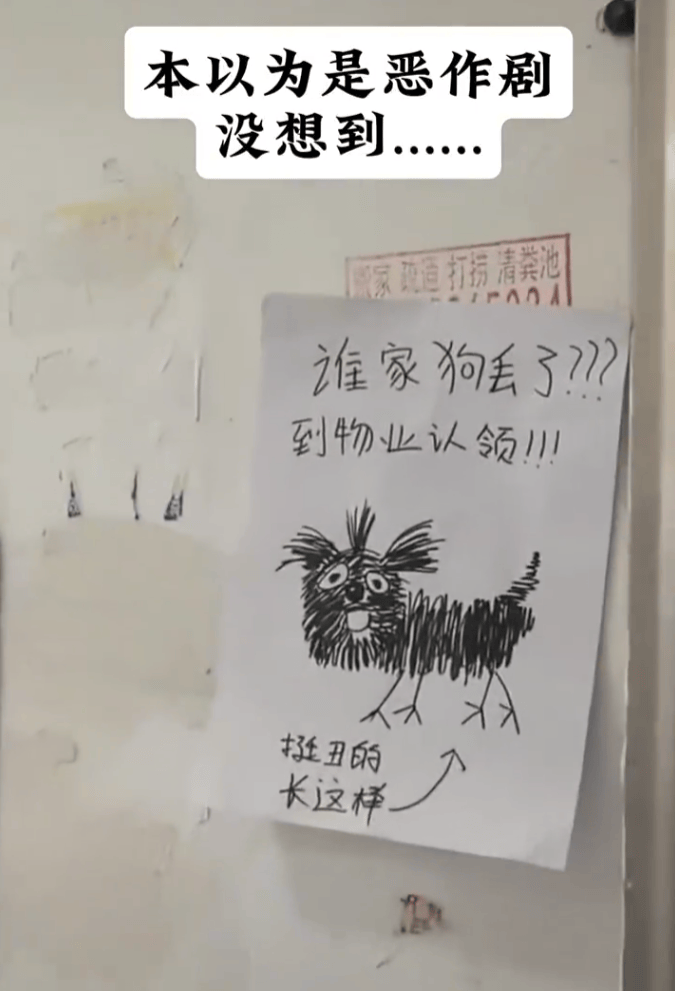 本以为是恶作剧
没想到......
搬家 疏通 打捞 清粪池
谁家狗丢了???
到物业认领!!!
挺丑的
长这样